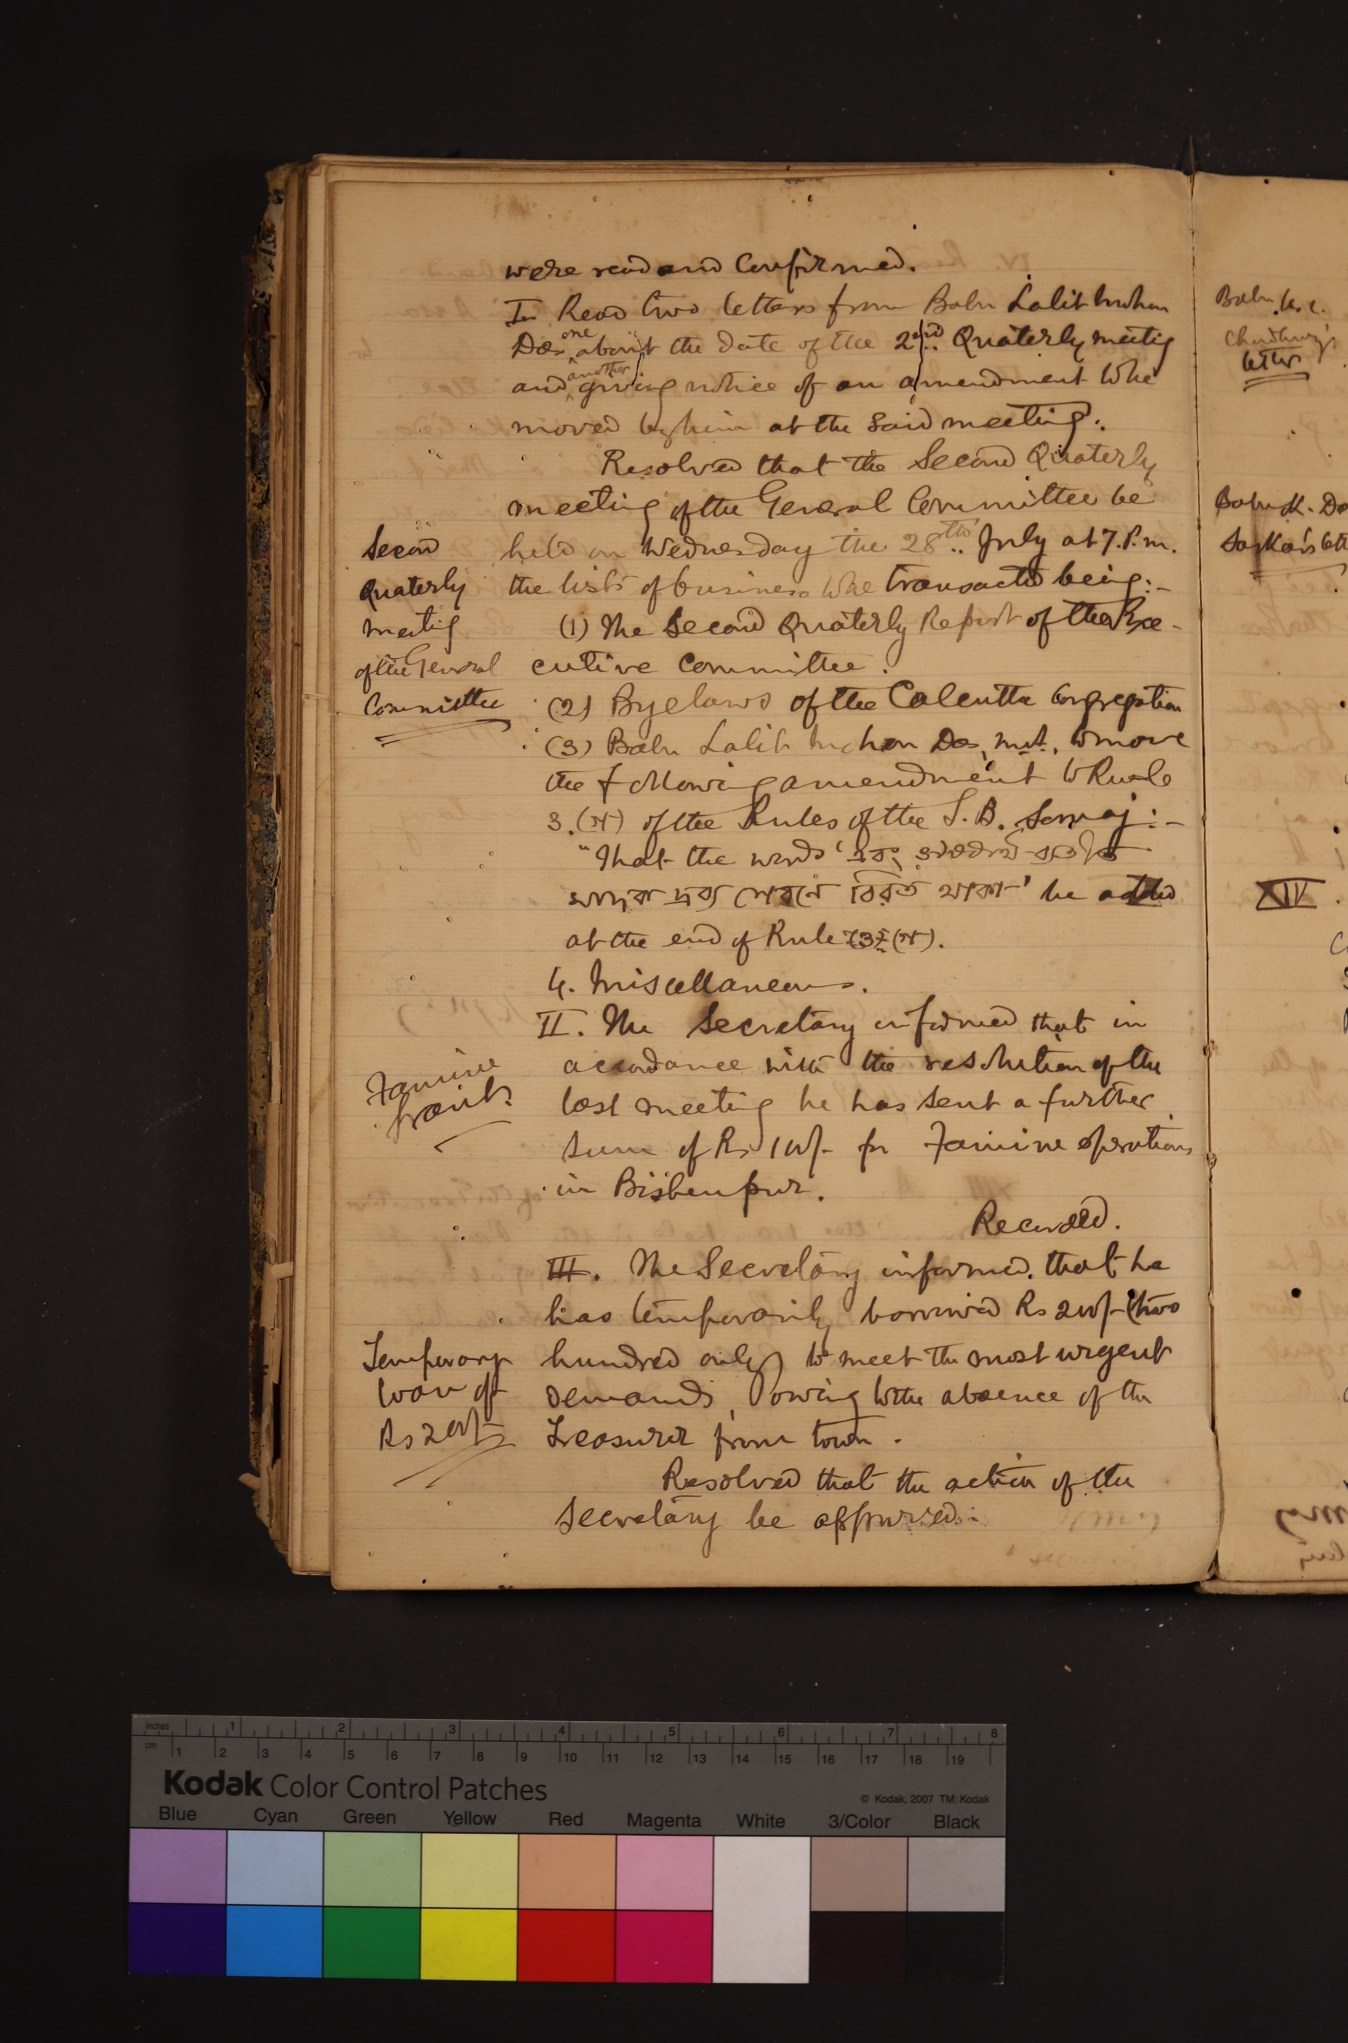 were read and Confirmed.
I. Read two letters from Babu Lalit Mohan
Das, one about the date of the 2nd Quaterly meetig
and another giving notice of an amendment to be
moved by him at the said meeting.
Resolved that the Second Quaterly
meeting of the General Committee be
held on Wednesday the 28th July at 7. P.m.
the lists of business to be transacted being:-
(1) The Second Quaterly Report of the Exe-
cutive Committee.
(2) Byelaws of the Calcutta Congregation
(3) Babu Lalit Mohan Das, M.A., to move
the following amendment to Rule
3. (গ) of the Rules of the S. B. Samaj:-
"That the words 'এবং
মাদক দ্রব্য সেবনে বিরত থাকা' be added
at the end of Rule (3) (গ).
4. Miscellaneous.
II. The Secretary informed that in
accordance with the resolution of the
last meeting he has sent a further
sum of Rs 100/- for Famine operations
in Bishenpur.
Recorded.
III. The Secretary informed that he
has temporarily borrowed Rs 200/- (two
hundred only) to meet the most urgent
demands, owing to the absence of the
Treasurer from town.
Resolved that the action of the
Secretary be approved.
Second
Quaterly
meetig
of the General
Committee
Famine
Temporary
loan of
Rs 200/-
Babu K. C.
Chowdhury's
letter
Babu K. Da
Sarkar's lett
XIV.
inches 1 2 3 4 5 6 7 8
cm 1 2 3 4 5 6 7 8 9 10 11 12 13 14 15 16 17 18 19
Kodak Color Control Patches
© Kodak, 2007 TM: Kodak
Blue Cyan Green Yellow Red Magenta White 3/Color Black